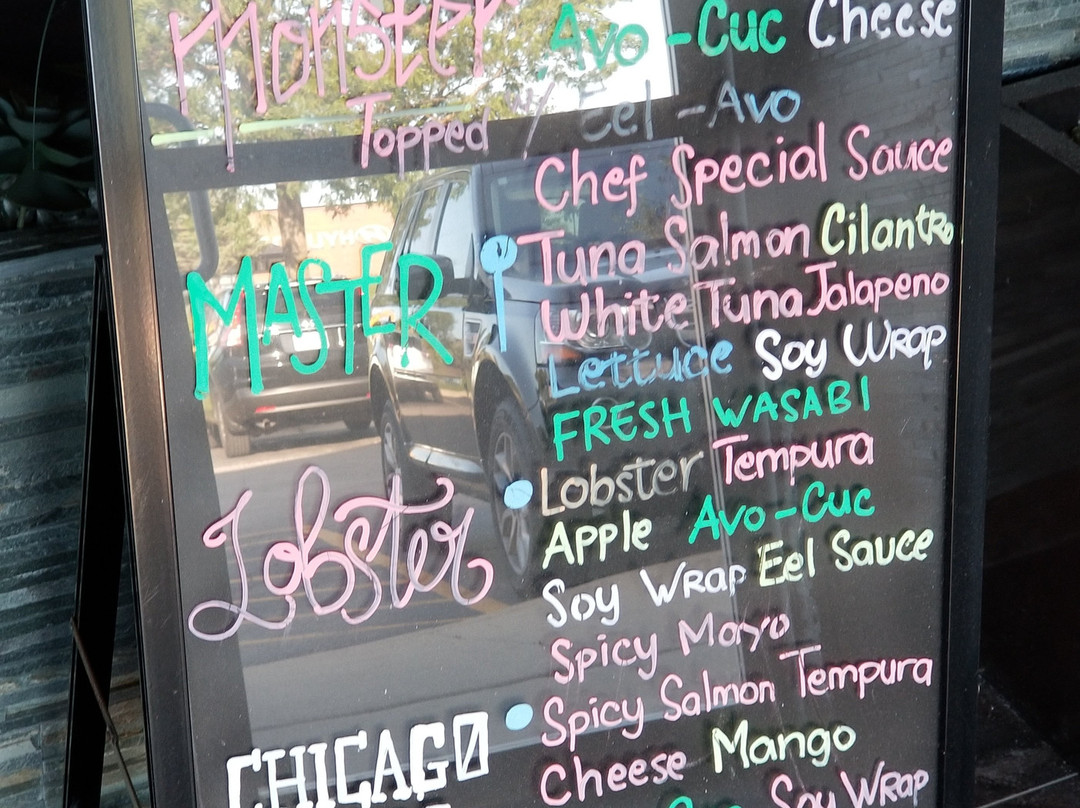 Monster Avo-Cuc Cheese
Topped / Eel-Avo
Chef Special Sauce
MASTER Tuna Salmon Cilantro
White Tuna Jalapeno
Lettuce Soy Wrap
FRESH WASABI
Lobster Lobster Tempura
Apple Avo-Cuc
Soy Wrap Eel Sauce
Spicy Mayo
CHICAGO Spicy Salmon Tempura
Cheese Mango
Soy Wrap